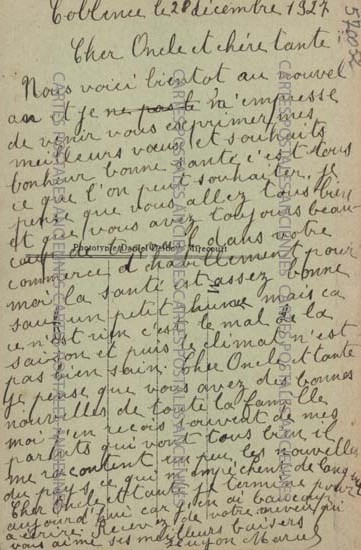 Coblence le 28 décembre 1927
Cher Oncle et chére tante
Nous voici bientot au nouvel
an et je ne pas te m'empresse
de venir vous exprimer mes
meilleurs vœux et souhaits
bonheur bonne santé c'est tous
ce que l'on peut souhaiter. je
pense que vous allez tous bien
et que vous avez toujours beau-
coup de dans votre
commerce d'habillement pour
moi la santé est assez bonne
sauf un petit rhume mais ca
ce n'est rien c'est le mal de la
saison et puis le climat n'est
pas bien sain. Cher Oncle et tante
je pense que vous avez des bonnes
nouvelles de toute la famille
moi j'en recois souvent de mes
parents qui vont tous bien il
me racontent un peu les nouvelles
du pays ce qui m'empêchent de
Cher Oncle et tante je termine pour
aujourd'hui car j'en ai beaucoup
a écrire Recevez de votre neveu qui
vous aime ses meilleurs baisers
Marcel
Phototypie Daniel Delboy Mirecourt
CARTOPOSTALES ANCIENNES